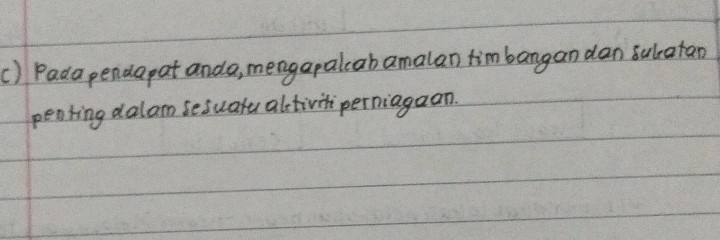 c) Pada pendapat anda, mengapakah amalan timbangan dan sukatan
penting dalam sesuatu aktiviti perniagaan.